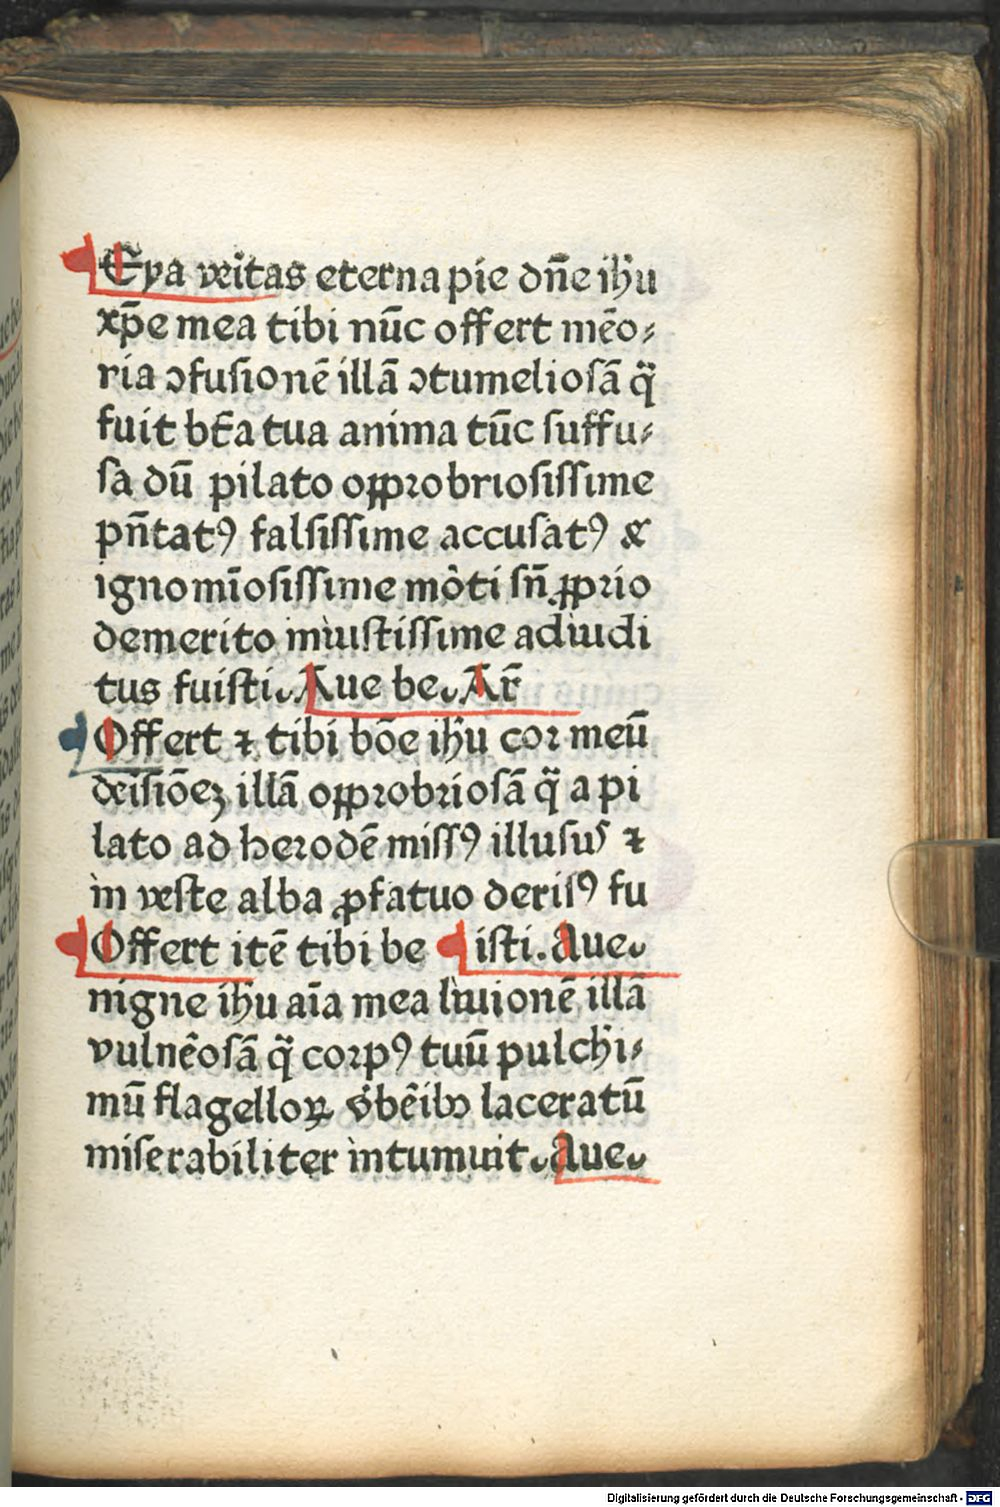 Eya veritas eterna pie dn̄e ih̄u
xp̄e mea tibi nūc offert mēo⸗
ria ɔfusionē illā ɔtumeliosā q̄
fuit bt̄a tua anima tūc suffu⸗
sa dū pilato oꝓprobriosissime
pn̄tatꝰ falsissime accusatꝰ &
ignomīosissime moti sn̄ ꝓprio
demerito iniustissime adiudi
tus fuisti. Aue be. Ar̄
Offert ⁊ tibi bōe ih̄u cor meū
deisiōeȝ illā opprobriosā q̄ a pi
lato ad herodē missꝰ illusus ⁊
in veste alba ꝓ fatuo derisꝰ fu
Offert itē tibi be ¶ isti. Aue
nigne ih̄u aīa mea liuionē illā
vulnēosā q̄ corpꝰ tuū pulchi⸗
mū flagelloꝝ vbēibꝫ laceratū
miserabiliter intumuit. Aue
Digitalisierung gefördert durch die Deutsche Forschungsgemeinschaft - DFG